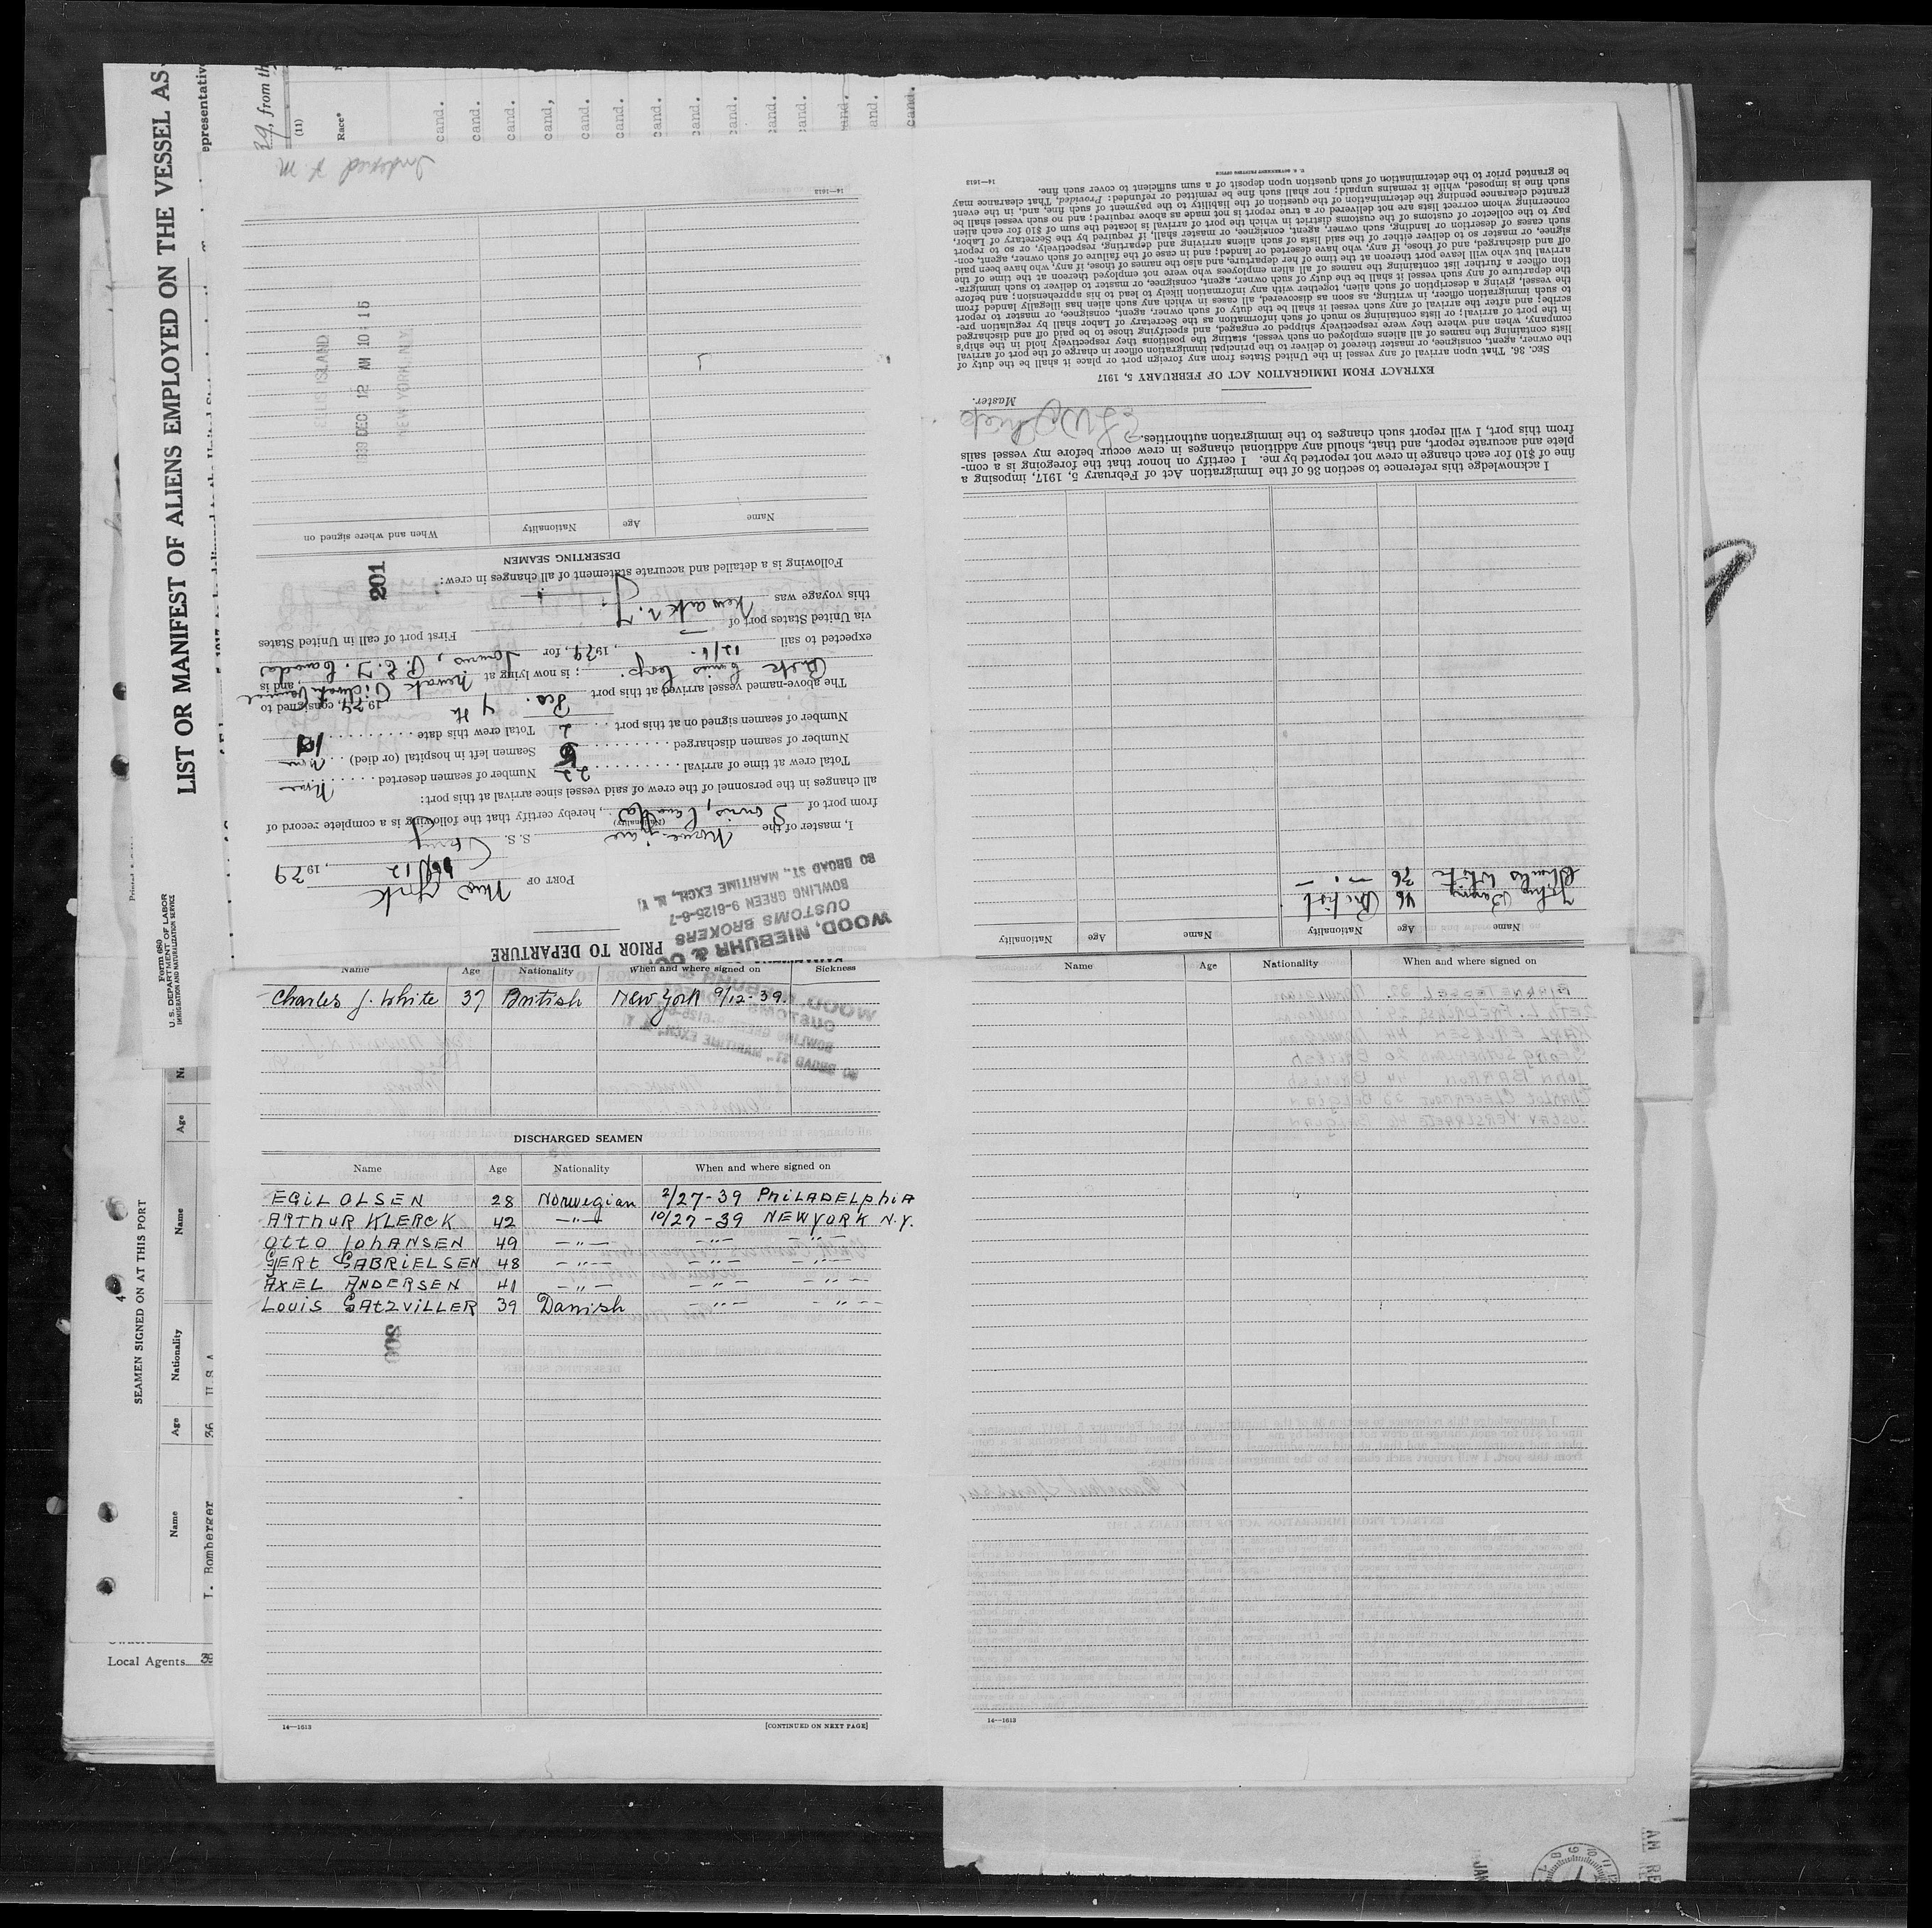 LIST OR MANIFEST OF ALIENS EMPLOYED ON THE VESSEL AS
Form 680
U. S. DEPARTMENT OF LABOR
IMMIGRATION AND NATURALIZATION SERVICE
epresentative
29, from th
(11)
Race*
cand.
cand.
cand.
cand,
cand.
cand.
cand.
cand.
cand.
cand.
cand.
cand.
and.
cand.
SEAMEN SIGNED ON AT THIS PORT
Name
Age
Nationality
Name
Age
I. Bomberger
36
U.S.A.
4
Local Agents
PRIOR TO DEPARTURE
WOOD, NIEBUHR & CO.
CUSTOMS BROKERS
BOWLING GREEN 9-6125-6-7
80 BROAD ST., MARITIME EXCH, N. Y.
PORT OF New York
Dec 12, 1939
I, master of the Norwegian S. S.
(Nationality)
from port of Souris, Canada, hereby certify that the following is a complete record of
all changes in the personnel of the crew of said vessel since arrival at this port:
Total crew at time of arrival 22 Number of seamen deserted None
Number of seamen discharged Seamen left in hospital (or died) None
Number of seamen signed on at this port 2 Total crew this date
The above-named vessel arrived at this port Dec. 4th 1939, consigned to
; is now lying at Newark, and is
expected to sail 12/ , 1939, for Souris, P. E. I. Canada
via United States port of — First port of call in United States
this voyage was Newark N. J.
Following is a detailed and accurate statement of all changes in crew:
201
DESERTING SEAMEN
Name Age Nationality When and where signed on
ELLIS ISLAND
1939 DEC 12 AM 10 15
NEW YORK, N.Y.
14—1613
Indexed
Name Age Nationality Name Age Nationality
John Barron 46 British
Charles White 36 — " —
I acknowledge this reference to section 36 of the Immigration Act of February 5, 1917, imposing a
fine of $10 for each change in crew not reported by me. I certify on honor that the foregoing is a com-
plete and accurate report, and that, should any additional changes in crew occur before my vessel sails
from this port, I will report such changes to the immigration authorities.
Master.
EXTRACT FROM IMMIGRATION ACT OF FEBRUARY 5, 1917
SEC. 36. That upon arrival of any vessel in the United States from any foreign port or place it shall be the duty of
the owner, agent, consignee, or master thereof to deliver to the principal immigration officer in charge of the port of arrival
lists containing the names of all aliens employed on such vessel, stating the positions they respectively hold in the ship's
company, when and where they were respectively shipped or engaged, and specifying those to be paid off and discharged
in the port of arrival; or lists containing so much of such information as the Secretary of Labor shall by regulation pre-
scribe; and after the arrival of any such vessel it shall be the duty of such owner, agent, consignee, or master to report
to such immigration officer, in writing, as soon as discovered, all cases in which any such alien has illegally landed from
the vessel, giving a description of such alien, together with any information likely to lead to his apprehension; and before
the departure of any such vessel it shall be the duty of such owner, agent, consignee, or master to deliver to such immigra-
tion officer a further list containing the names of all alien employees who were not employed thereon at the time of the
arrival but who will leave port thereon at the time of her departure, and also the names of those, if any, who have been paid
off and discharged, and of those, if any, who have deserted or landed; and in case of the failure of such owner, agent, con-
signee, or master so to deliver either of the said lists of such aliens arriving and departing, respectively, or so to report
such cases of desertion or landing, such owner, agent, consignee, or master shall, if required by the Secretary of Labor,
pay to the collector of customs of the customs district in which the port of arrival is located the sum of $10 for each alien
concerning whom correct lists are not delivered or a true report is not made as above required; and no such vessel shall be
granted clearance pending the determination of the question of the liability to the payment of such fine, and, in the event
such fine is imposed, while it remains unpaid; nor shall such fine be remitted or refunded: Provided, That clearance may
be granted prior to the determination of such question upon deposit of a sum sufficient to cover such fine.
U. S. GOVERNMENT PRINTING OFFICE
14—1613
Name Age Nationality When and where signed on Sickness
Charles J. White 37 British New York 9/12-39.
DISCHARGED SEAMEN
Name Age Nationality When and where signed on
EGIL OLSEN 28 Norwegian 2/27-39 PHILADELPHIA
ARTHUR KLERCK 42 —"— 10/27-39 NEW YORK N.Y.
OTTO JOHANSEN 49 —"— —"— —"—
GERT GABRIELSEN 48 —"— —"— —"—
AXEL ANDERSEN 41 —"— —"— —"—
LOUIS GATZVILLER 39 Danish —"— —"—
14—1613
[CONTINUED ON NEXT PAGE]
Name Age Nationality When and where signed on
14—1613
JAN
AM